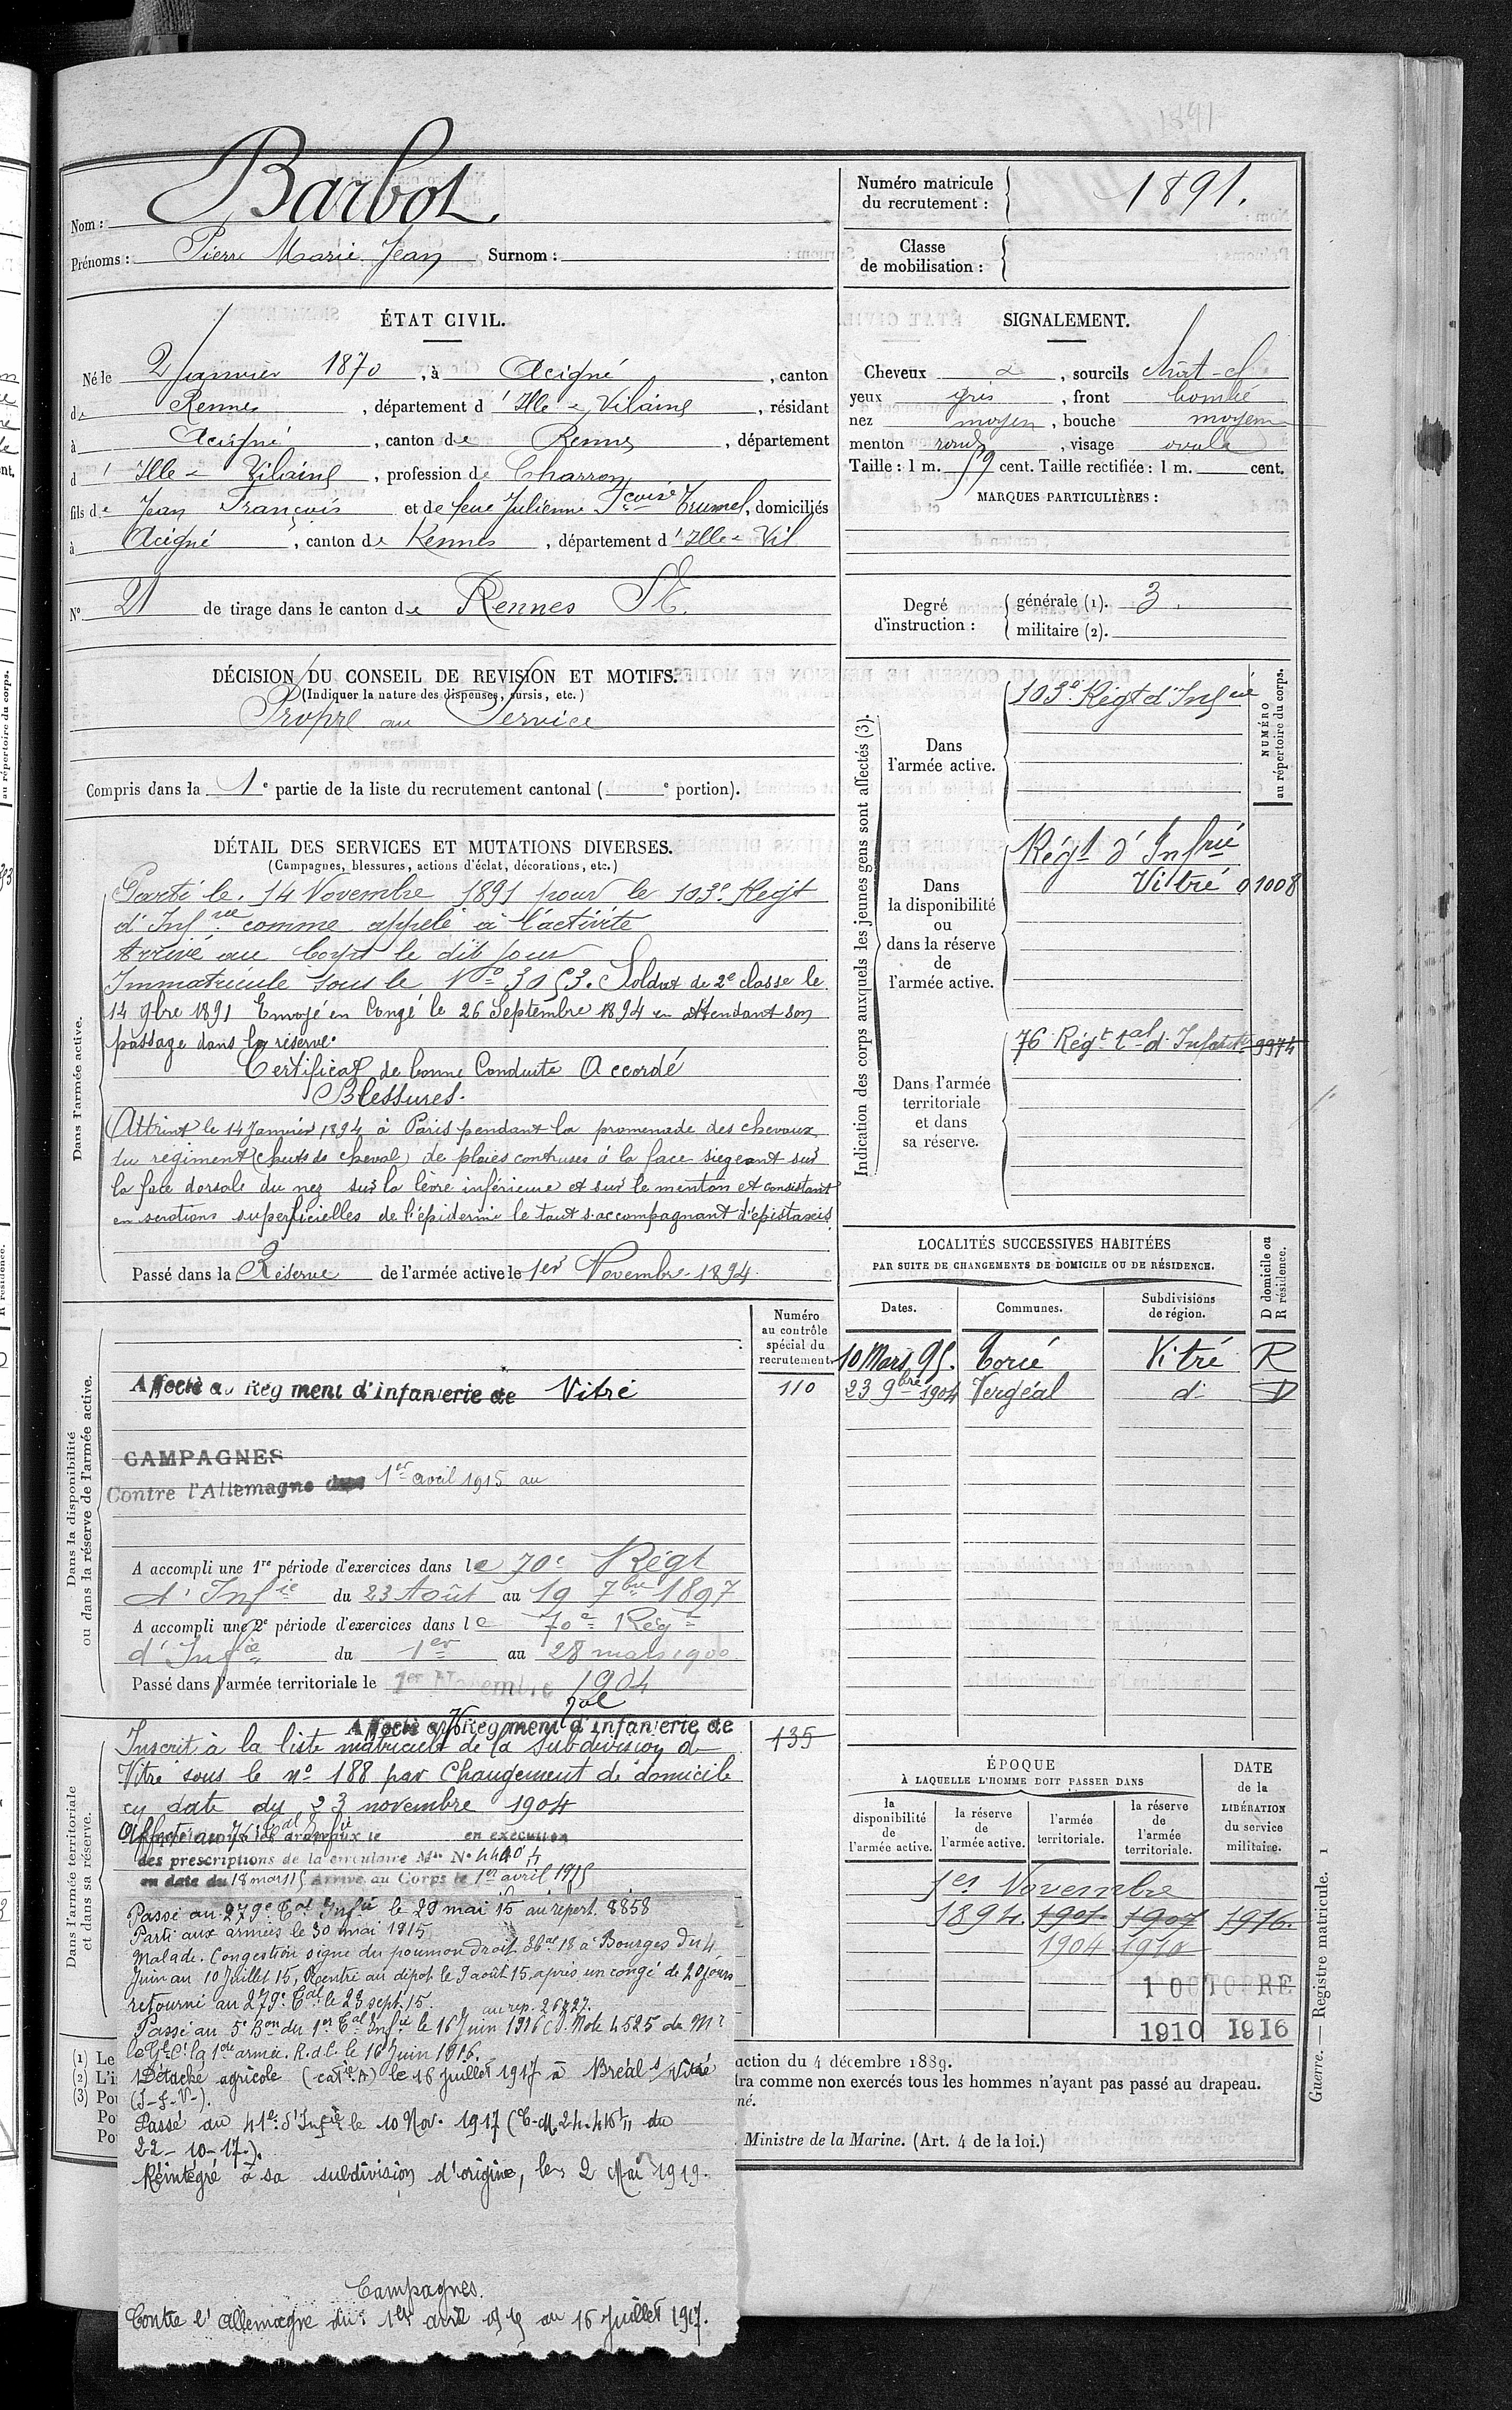 1891
Nom : Barbot
Prénoms : Pierre Marie Jean Surnom :
Numéro matricule du recrutement : 1891.
Classe de mobilisation :
ÉTAT CIVIL.
Né le 2 Janvier 1870, à Acigné, canton
de Rennes, département d'Ille & Vilaine, résidant
à Acigné, canton de Rennes, département
d'Ille & Vilaine, profession de Charron
fils de Jean François et de feue Julienne Fcoise Trumel, domiciliés
à Acigné, canton de Rennes, département d'Ille & Vil
N° 21 de tirage dans le canton de Rennes S.E.
SIGNALEMENT.
Cheveux &, sourcils chât-cl
yeux gris, front bombé
nez moyen, bouche moyenne
menton rond, visage ovale
Taille : 1 m. 59 cent. Taille rectifiée : 1 m. cent.
MARQUES PARTICULIÈRES :
Degré d'instruction : générale (1). 3.
militaire (2).
DÉCISION DU CONSEIL DE REVISION ET MOTIFS.
(Indiquer la nature des dispenses, sursis, etc.)
Propre au Service
Compris dans la 1e partie de la liste du recrutement cantonal ( e portion).
DÉTAIL DES SERVICES ET MUTATIONS DIVERSES.
(Campagnes, blessures, actions d'éclat, décorations, etc.)
Dans l'armée active.
Parti le 14 Novembre 1891 pour le 103e Regt
d'Infrie comme appelé à l'activité
Arrivé au Corps le dit jour
Immatricule sous le No 3053. Soldat de 2e classe le
14 9bre 1891 Envoyé en Congé le 26 Septembre 1894 en attendant son
passage dans la réserve.
Certificat de bonne Conduite Accordé
Blessures.
Atteint le 14 Janvier 1894 à Paris pendant la promenade des chevaux
du regiment (chute de cheval) de plaies contuses à la face siegeant sur
la face dorsale du nez sur la lèvre inférieure et sur le menton et consistant
en superficielles de l'épiderme le tout s'accompagnant d'épistaxis.
Passé dans la Réserve de l'armée active le 1er Novembre 1894.
Indication des corps auxquels les jeunes gens sont affectés (3).
NUMÉRO au répertoire du corps.
Dans l'armée active.
103e Régt d'Infrie
Dans la disponibilité ou dans la réserve de l'armée active.
Régt d'Infrie
Vitré 01008
Dans l'armée territoriale et dans sa réserve.
76 Régt tal d'Infanterie 9974
LOCALITÉS SUCCESSIVES HABITÉES
PAR SUITE DE CHANGEMENTS DE DOMICILE OU DE RÉSIDENCE.
Dates. Communes. Subdivisions de région. D domicile ou R résidence.
10 Mars 95. Torcé Vitré R
23 9bre 1904 Vergéal d° D
Dans la disponibilité ou dans la réserve de l'armée active.
Numéro au contrôle spécial du recrutement.
Affecté au Régiment d'infanterie de Vitré 110
CAMPAGNES
Contre l'Allemagne du 1er avril 1915 au
A accompli une 1re période d'exercices dans le 70e Régt
d'Infie du 23 Août au 19 7bre 1897
A accompli une 2e période d'exercices dans le 70e Régt
d'Infie du 1er au 28 mars 1900
Passé dans l'armée territoriale le 1er Novembre 1904
Dans l'armée territoriale et dans sa réserve.
Affecté au 76 Régiment tal d'infanterie de 135
Inscrit à la liste matricule de la Subdivision de
Vitré sous le n° 188 par Changement de domicile
en date du 23 novembre 1904
Affecté au 76e tal Infie en exécution
des prescriptions de la circulaire Mlle N° 4440
en date du 18 mars 15 Arrivé au Corps le 1er avril 1915
Passé au 279e Tal Infie le 29 mai 15 au répert. 8858
Parti aux armées le 30 mai 1915
Malade. Congestion du poumon droit. 18 à Bourges du 4
Juin au 10 Juillet 15, Rentré au dépot le 9 août 15 après un congé de 20 jours
retourné au 279e Tal le 23 sept. 15. au rep. 26727.
Passé au 5e Bon du 1er Tal Infie le 16 Juin 1916 (D. Note 4525 de Mr
le Gl Ct la 1ère armée. R.d.C. le 16 Juin 1916.
Détaché agricole (catie A) le 16 juillet 1917 à Bréal s/ Vitré
(I-&-V-).
Passé au 41e d'Infie le 10 Nov. 1917 (C-M 24.416 du
22-10-17.).
Réintégré à sa subdivision d'origine, le 2 Mai 1919.
Campagnes.
Contre l'Allemagne du 1er avril 15 au 16 Juillet 1917.
ÉPOQUE
À LAQUELLE L'HOMME DOIT PASSER DANS
la disponibilité de l'armée active. la réserve de l'armée active. l'armée territoriale. la réserve de l'armée territoriale. DATE de la LIBÉRATION du service militaire.
1er Novembre
1894. 1901 1907 1916.
1904 1910
1 OCTOBRE
1910 1916
(1) Le
(2) L'i
(3) Pou
Po
Po
action du 4 décembre 1889.
tra comme non exercés tous les hommes n'ayant pas passé au drapeau.
né.
Ministre de la Marine. (Art. 4 de la loi.)
Guerre. — Registre matricule. 1